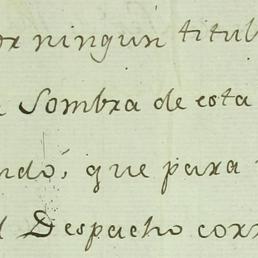 or ningun titul
Sombra de esta
ndó, que para
Despacho corr